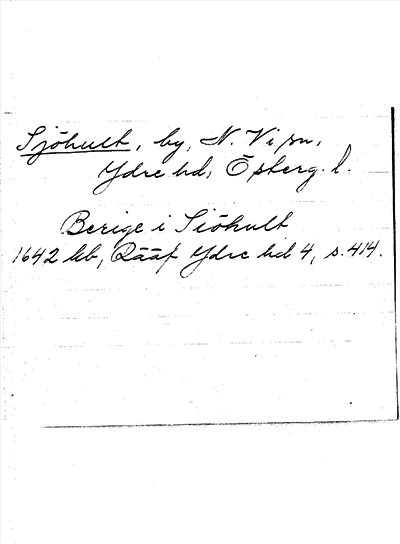 Sjöhult, by, N. Vi sn,
Ydre hd, Östberg. l.
Berige i Siöhult
1642 kb, Rääf Ydre hd 4, s. 414.